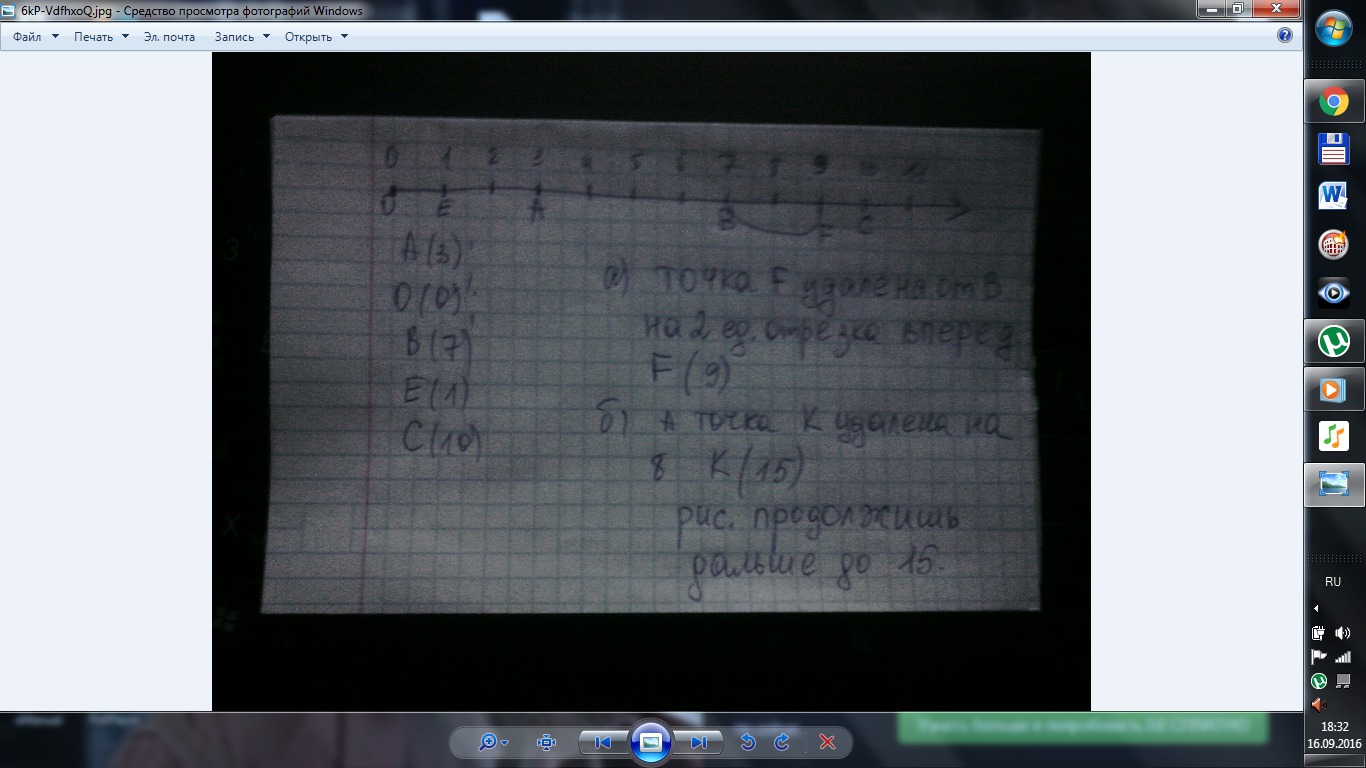 6kP-VdfhxoQ.jpg - Средство просмотра фотографий Windows
Файл Печать Эл. почта Запись Открыть
0 1 2 3 4 5 6 7 8 9 10 11
O E A B F C
A(3)
O(0)
B(7)
E(1)
C(10)
а) точка F удалена от B
на 2 ед. отрезка вперед
F(9)
б) А точка K удалена на
8 K(15)
рис. продолжишь
дальше до 15.
RU
18:32
16.09.2016